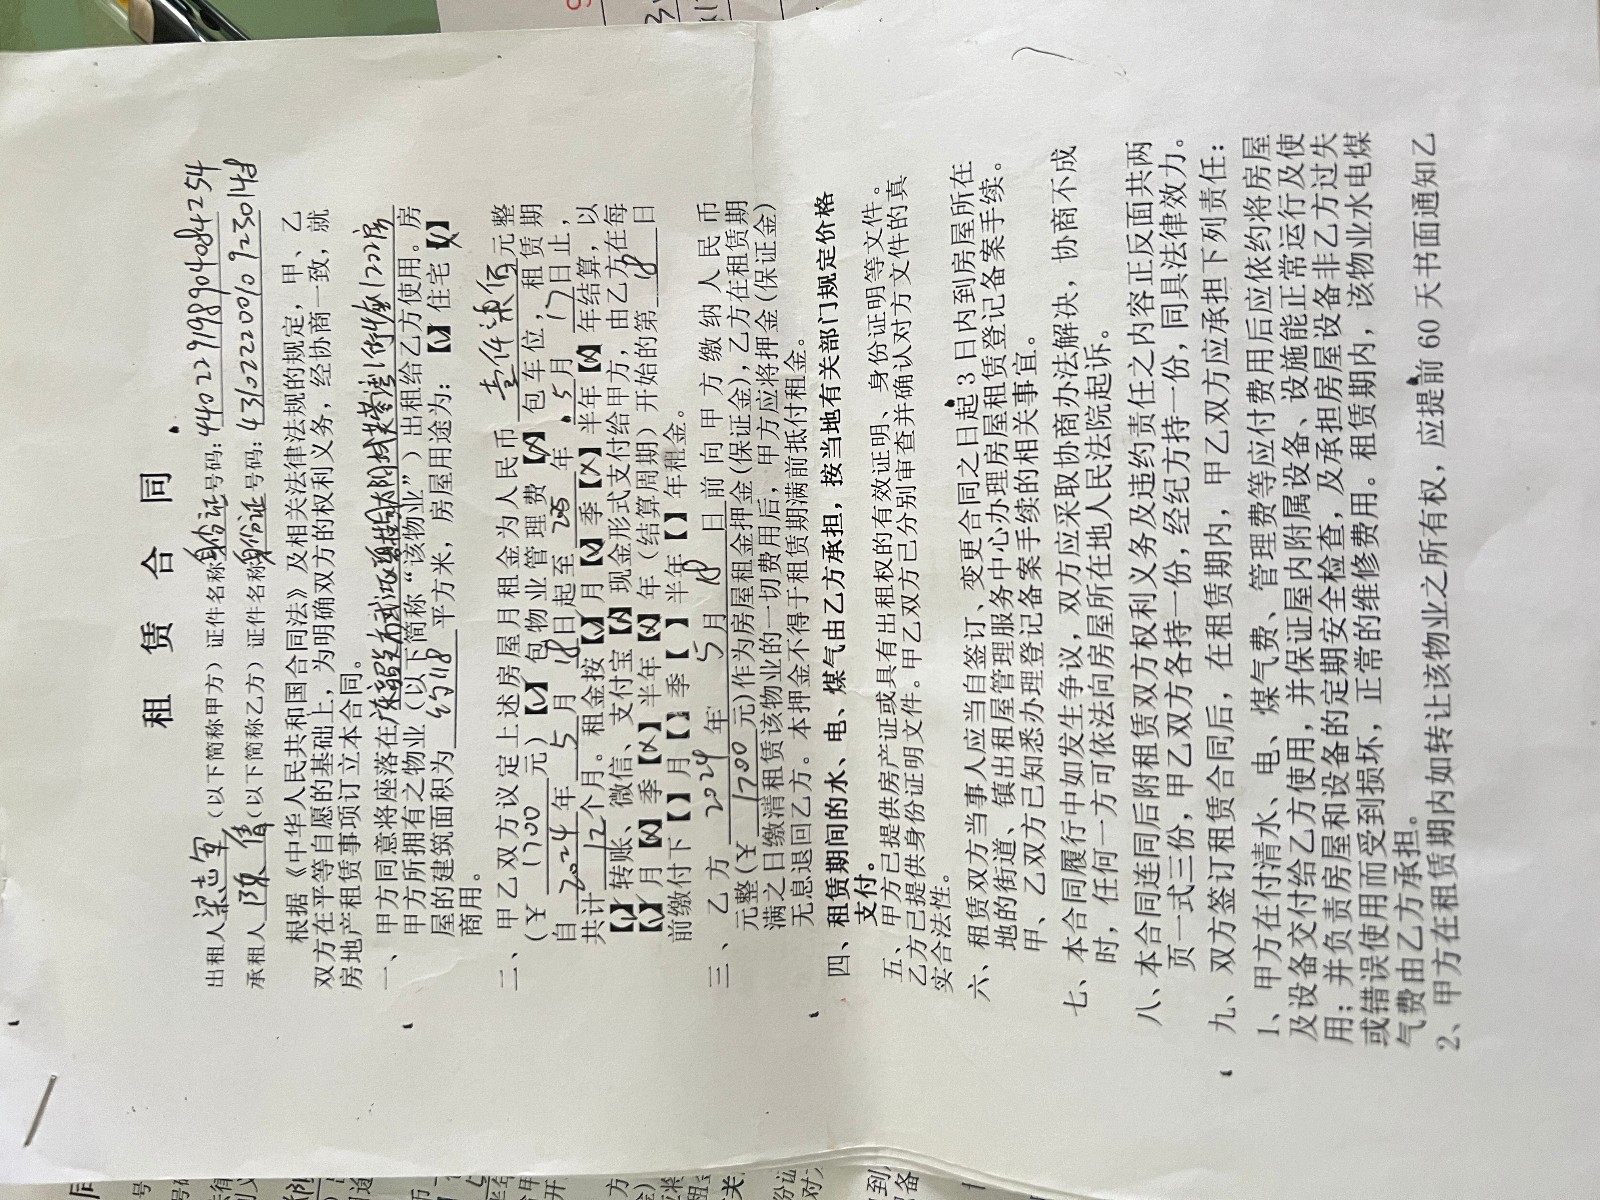 租 赁 合 同
出租人梁志军（以下简称甲方）证件名称身份证号码：440229198904084254
承租人陈倩（以下简称乙方）证件名称身份证号码：
根据《中华人民共和国合同法》及相关法律法规的规定，甲、乙
双方在平等自愿的基础上，为明确双方的权利义务，经协商一致，就
房地产租赁事项订立本合同。
一、 甲方同意将座落在 1202房
甲方所拥有之物业（以下简称“该物业”）出租给乙方使用。房
屋的建筑面积为约48平方米，房屋用途为：【√】住宅【X】
商用。
二、 甲乙双方议定上述房屋月租金为人民币壹仟柒佰元整
（￥1700元）【√】包物业管理费【X】包车位，租赁期
自2024年5月18日起至2025年5月17日止，
共计12个月。租金按【√】月【√】季【X】半年【X】年结算，以
【√】转账、微信、支付宝【X】现金形式支付给甲方，由乙方在每
【√】月【X】季【X】半年【X】年（结算周期）开始的第18日
前缴付下【】月【】季【】半年【】年租金。
三、乙方2024年5月18日前向甲方缴纳人民币
元整（￥1700元）作为房屋租金押金（保证金），乙方在租赁期
满之日缴清租赁该物业的一切费用后，甲方应将押金（保证金）
无息退回乙方。本押金不得于租赁期满前抵付租金。
四、租赁期间的水、电、煤气由乙方承担，按当地有关部门规定价格
支付。
五、甲方已提供房产证或具有出租权的有效证明、身份证明等文件。
乙方已提供身份证明文件。甲乙双方已分别审查并确认对方文件的真
实合法性。
六、 租赁双方当事人应当自签订、变更合同之日起 3 日内到房屋所在
地的街道、镇出租屋管理服务中心办理房屋租赁登记备案手续。
甲、乙双方已知悉办理登记备案手续的相关事宜。
七、本合同履行中如发生争议，双方应采取协商办法解决，协商不成
时，任何一方可依法向房屋所在地人民法院起诉。
八、本合同连同后附租赁双方权利义务及违约责任之内容正反面共两
页一式三份，甲乙双方各持一份，经纪方持一份，同具法律效力。
九、 双方签订租赁合同后，在租赁期内，甲乙双方应承担下列责任：
1、甲方在付清水、电、煤气费、管理费等应付费用后应依约将房屋
及设备交付给乙方使用，并保证屋内附属设备、设施能正常运行及使
用；并负责房屋和设备的定期安全检查，及承担房屋设备非乙方过失
或错误使用而受到损坏，正常的维修费用。租赁期内，该物业水电煤
气费由乙方承担。
2、甲方在租赁期内如转让该物业之所有权，应提前 60 天书面通知乙